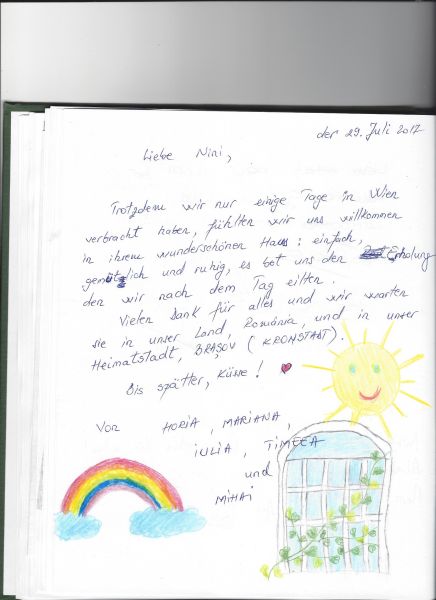 der 29. Juli 2017
Liebe Nini,
Trotzdem wir nur einige Tage in Wien
verbracht haben, fühlten wir uns willkommen
in ihrem wunderschönen Haus: einfach,
gemütlich und ruhig, es bot uns den Erholung
den wir nach dem Tag eilten.
Vielen dank für alles und wir warten
sie in unser Land, România, und in unser
Heimatstadt, BRAȘOV (KRONSTADT).
Bis spätter, Küsse!
Von HORIA, MARIANA,
IULIA, TIMEEA
und
MIHAI